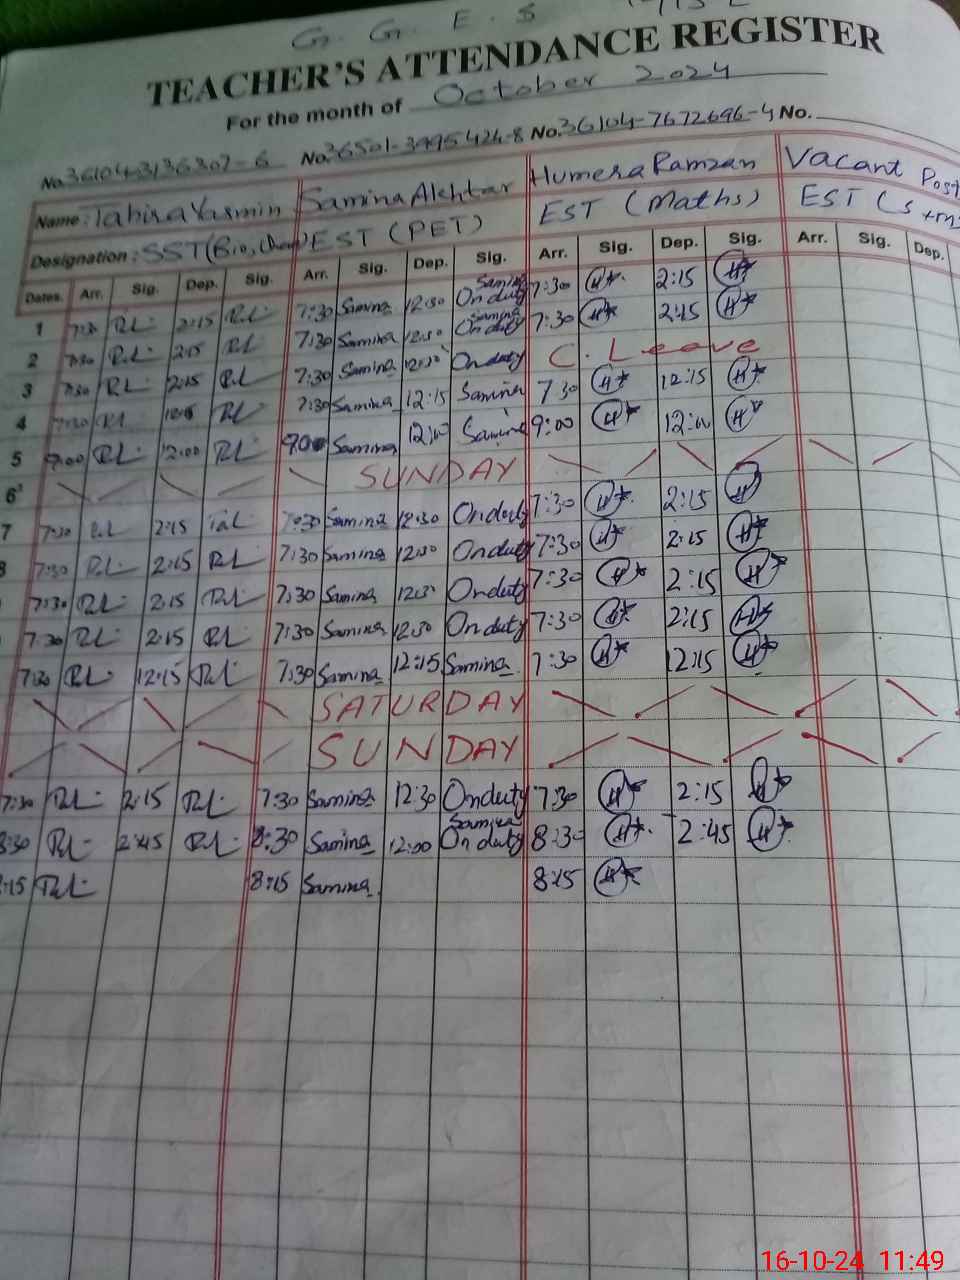 G. G. E. S
TEACHER'S ATTENDANCE REGISTER
For the month of October 2024
No. 36104-3136307-6 No. 36501-3995424-8 No. 36104-7672696-4 No.
Name: Tahira Yasmin Samina Akhtar Humera Ramzan Vacant Post
Designation: SST (Bio, Chem) EST (PET) EST (Maths) EST (S
Dates. Arr. Sig. Dep. Sig. Arr. Sig. Dep. Sig. Arr. Sig. Dep. Sig. Arr. Sig. Dep.
1 7:30 2:15 7:30 Samina 12:30 Samina On duty 7:30 2:15
2 7:30 2:15 7:30 Samina 12:30 Samina On duty 7:30 2:15
3 7:30 2:15 7:30 Samina 12:30 On duty C. Leave
4 7:30 12:15 7:30 Samina 12:15 Samina 7:30 12:15
5 9:00 12:00 9:00 Samina 12:00 Samina 9:00 12:00
6 SUNDAY
7 7:30 2:15 7:30 Samina 12:30 On duty 7:30 2:15
7:30 2:15 7:30 Samina 12:30 On duty 7:30 2:15
7:30 2:15 7:30 Samina 12:30 On duty 7:30 2:15
7:30 2:15 7:30 Samina 12:30 On duty 7:30 2:15
7:30 12:15 7:30 Samina 12:15 Samina 7:30 12:15
SATURDAY
SUNDAY
7:30 2:15 7:30 Samina 12:30 On duty 7:30 2:15
8:30 2:45 8:30 Samina 12:00 Samina On duty 8:30 2:45
8:15 8:15 Samina 8:15
16-10-24 11:49